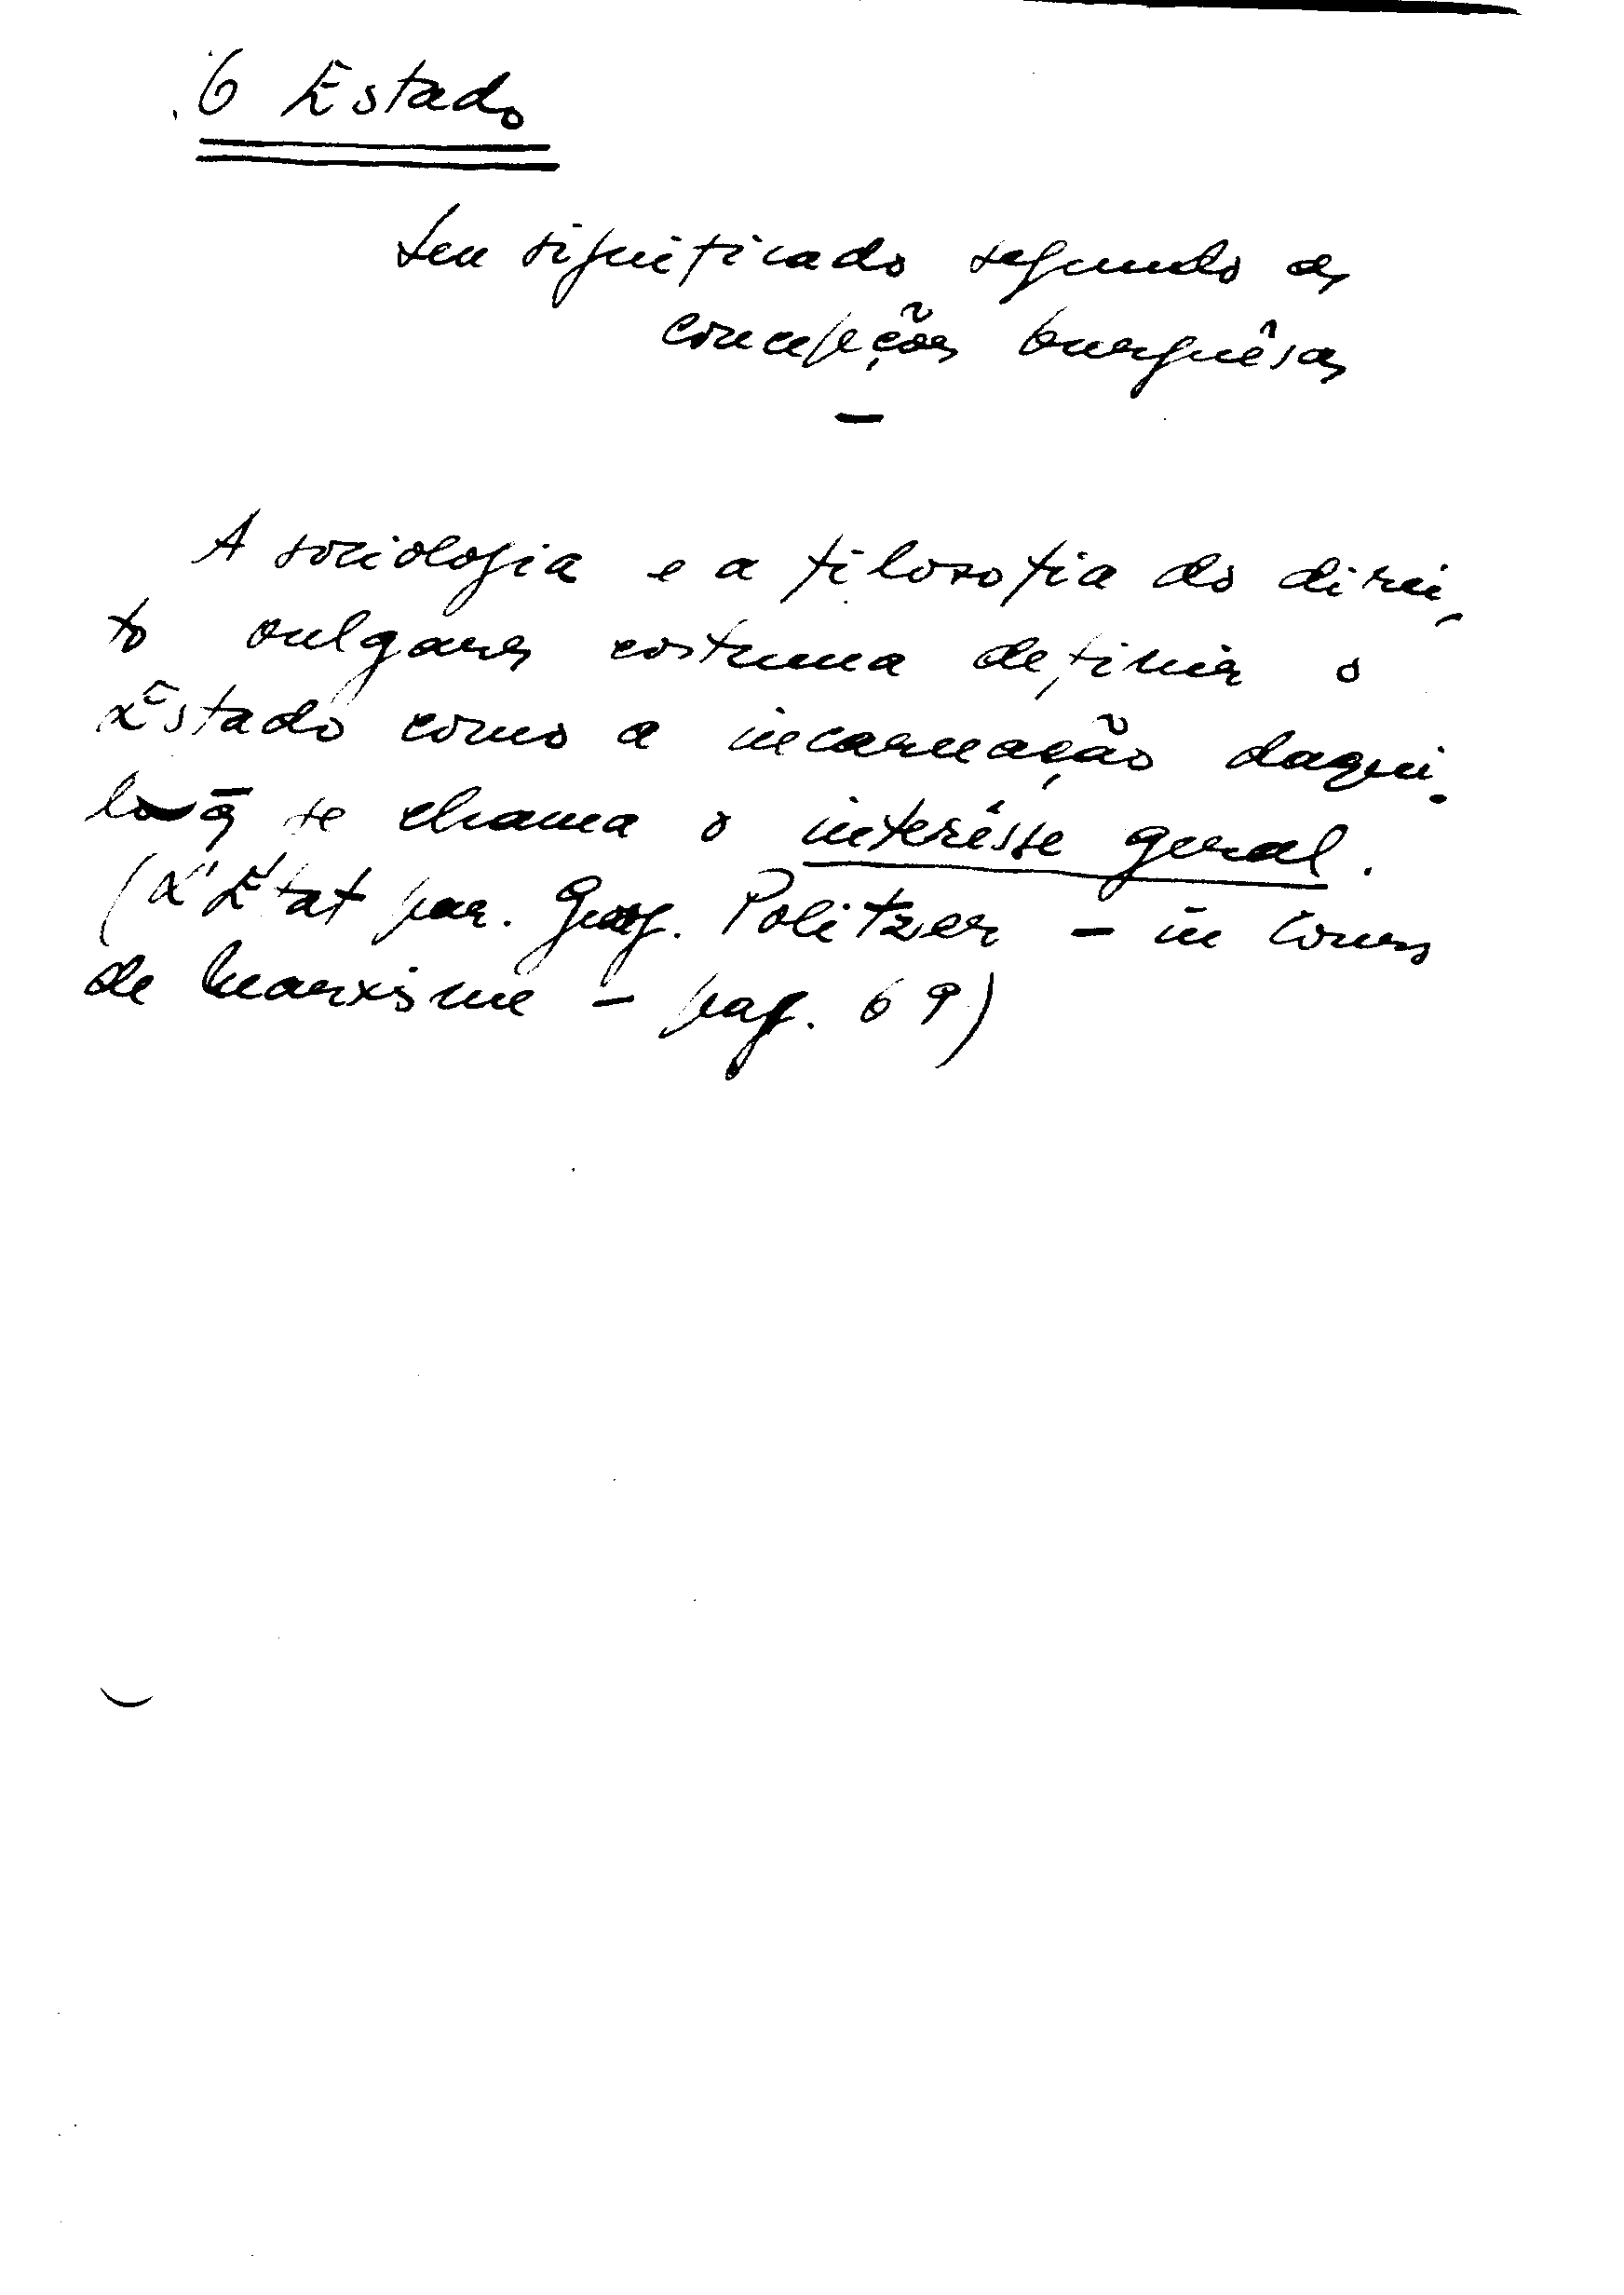 O Estado
Seu significado segundo as
concepções burguêsas
—
A sociologia e a filosofia do direi-
to vulgares costuma definir o
Estado como a incarnação daqui-
lo q̄ se chama o interêsse geral.
(L'État par. Georg. Politzer – in Cours
de Marxisme – pag. 69)